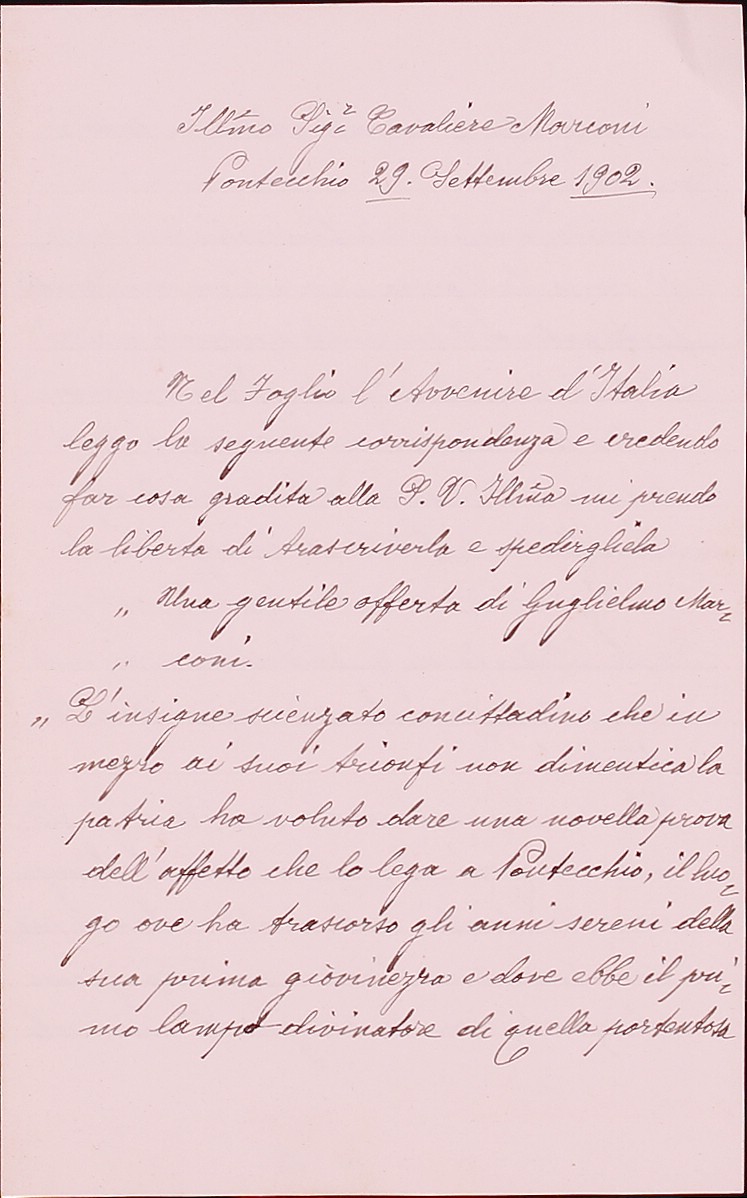 Illmo Sigr Cavaliere Marconi
Pontecchio 29. Settembre 1902.
Nel Foglio l'Avvenire d'Italia
leggo la seguente corrispondenza e credendo
far cosa gradita alla S. V. Illma mi prendo
la liberta di trascriverla e spedirgliela
„ Una gentile offerta di Guglielmo Mar=
„ coni.
„ L'insigne scienzato concittadino che in
mezzo ai suoi trionfi non dimentica la
patria ha voluto dare una novella prova
dell'affetto che lo lega a Pontecchio, il luo=
go ove ha trascorso gli anni sereni della
sua prima giovinezza e dove ebbe il pri=
mo lampo divinatore di quella portentosa